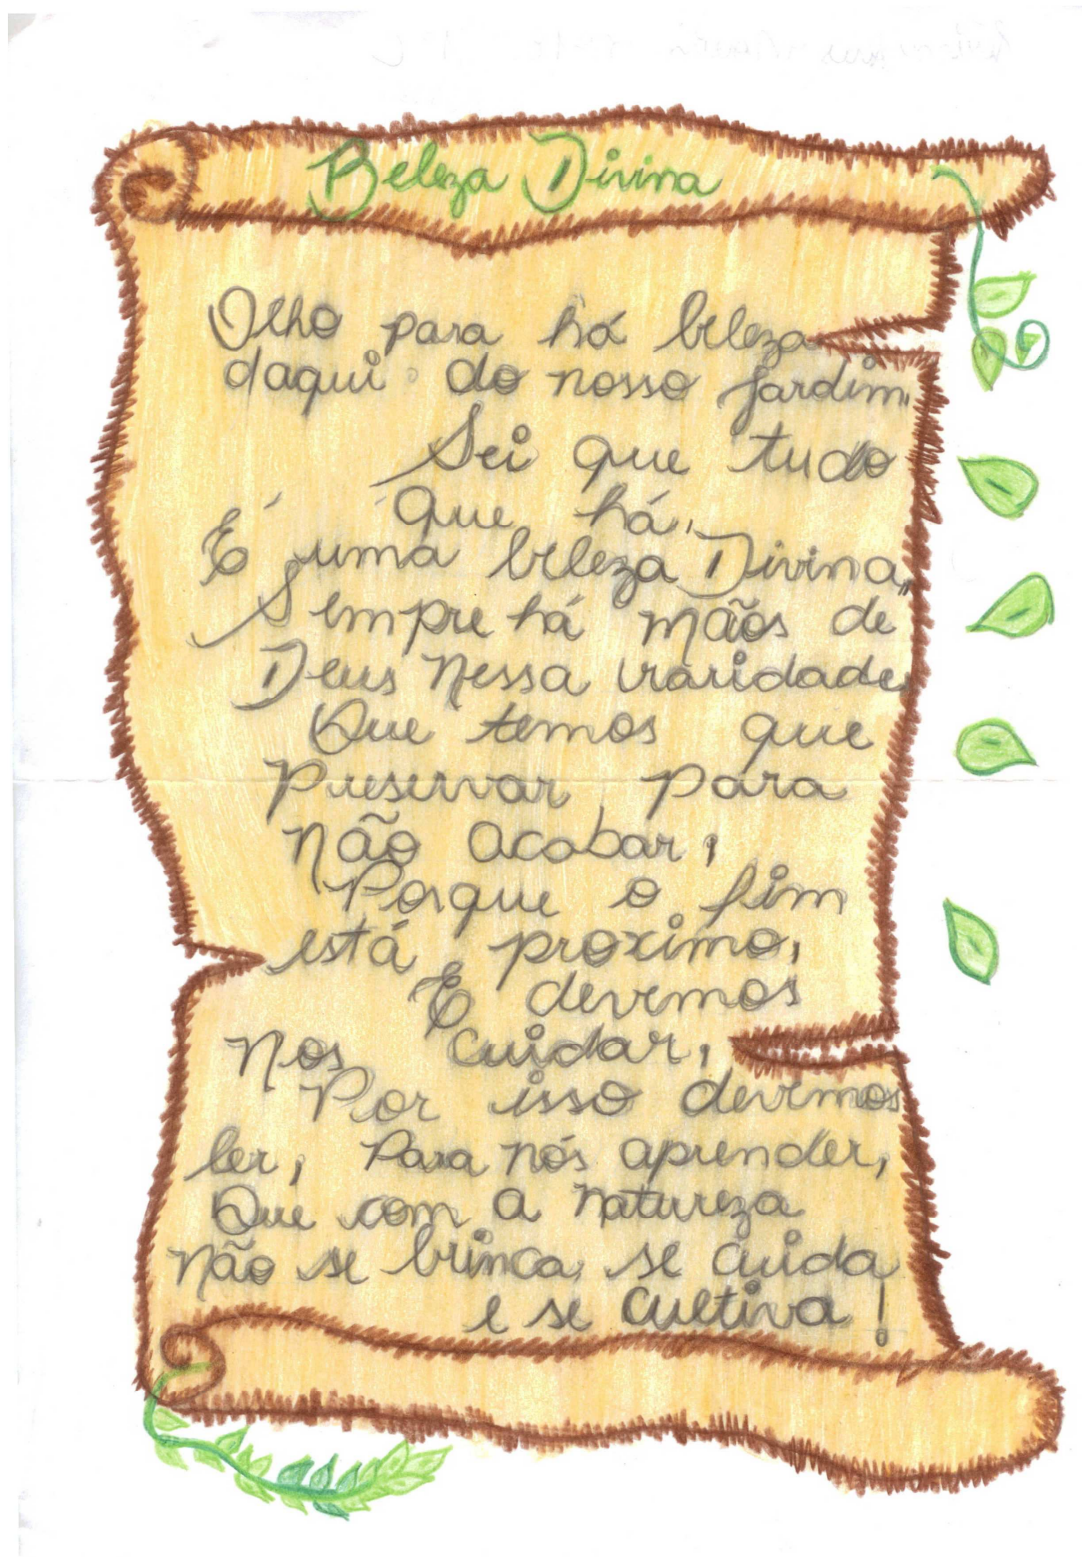 Beleza Divina
Olho para há beleza
daqui do nosso jardim,
Sei que tudo
que há,
É uma beleza Divina,
Sempre há mãos de
Deus nessa variedade,
Que temos que
Preservar para
não acabar,
Porque o fim
está proximo,
E devemos
nos cuidar,
Por isso devemos
ler, Para nós aprender,
Que com a natureza
não se brinca, se cuida
e se cultiva!